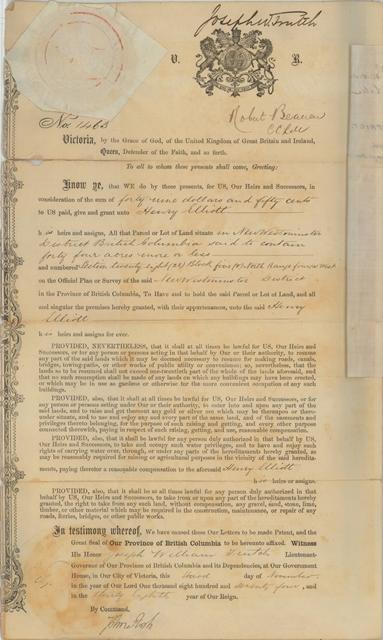 Joseph W Trutch
V. R.
No. 1463
Robert Beaven
CCLW
Victoria, by the Grace of God, of the United Kingdom of Great Britain and Ireland,
Queen, Defender of the Faith, and so forth.
To all to whom these presents shall come, Greeting:
Know ye, that WE do by these presents, for US, Our Heirs and Successors, in
consideration of the sum of forty nine dollars and fifty cents
to US paid, give and grant unto Henry Elliott
his heirs and assigns, All that Parcel or Lot of Land situate in New Westminster
District British Columbia said to contain
forty four acres more or less
and numbered Section twenty eight (28) Block five (5) North Range four West
on the Official Plan or Survey of the said New Westminster District
in the Province of British Columbia, To Have and to hold the said Parcel or Lot of Land, and all
and singular the premises hereby granted, with their appurtenances, unto the said Henry
Elliott
his heirs and assigns for ever.
PROVIDED, NEVERTHELESS, that it shall at all times be lawful for US, Our Heirs and
Successors, or for any person or persons acting in that behalf by Our or their authority, to resume
any part of the said lands which it may be deemed necessary to resume for making roads, canals,
bridges, towing-paths, or other works of public utility or convenience; so, nevertheless, that the
lands so to be resumed shall not exceed one-twentieth part of the whole of the lands aforesaid, and
that no such resumption shall be made of any lands on which any buildings may have been erected,
or which may be in use as gardens or otherwise for the more convenient occupation of any such
buildings.
PROVIDED, also, that it shall at all times be lawful for US, Our Heirs and Successors, or for
any person or persons acting under Our or their authority, to enter into and upon any part of the
said lands, and to raise and get thereout any gold or silver ore which may be thereupon or there-
under situate, and to use and enjoy any and every part of the same land, and of the easements and
privileges thereto belonging, for the purpose of such raising and getting, and every other purpose
connected therewith, paying in respect of such raising, getting, and use, reasonable compensation.
PROVIDED, also, that it shall be lawful for any person duly authorized in that behalf by US,
Our Heirs and Successors, to take and occupy such water privileges, and to have and enjoy such
rights of carrying water over, through, or under any parts of the hereditaments hereby granted, as
may be reasonably required for mining or agricultural purposes in the vicinity of the said heredita-
ments, paying therefor a reasonable compensation to the aforesaid Henry Elliott
his heirs or assigns.
PROVIDED, also, that it shall be at all times lawful for any person duly authorized in that
behalf by US, Our Heirs and Successors, to take from or upon any part of the hereditaments hereby
granted, the right to take from any such land, without compensation, any gravel, sand, stone, lime,
timber, or other material which may be required in the construction, maintenance, or repair of any
roads, ferries, bridges, or other public works.
In testimony whereof, We have caused these Our Letters to be made Patent, and the
Great Seal of Our Province of British Columbia to be hereunto affixed. Witness
His Honor Joseph William Trutch Lieutenant-
Governor of Our Province of British Columbia and its Dependencies, at Our Government
House, in Our City of Victoria, this third day of November
in the year of Our Lord One thousand eight hundred and seventy four, and
in the thirty eighth year of Our Reign.
By Command.
John Ash